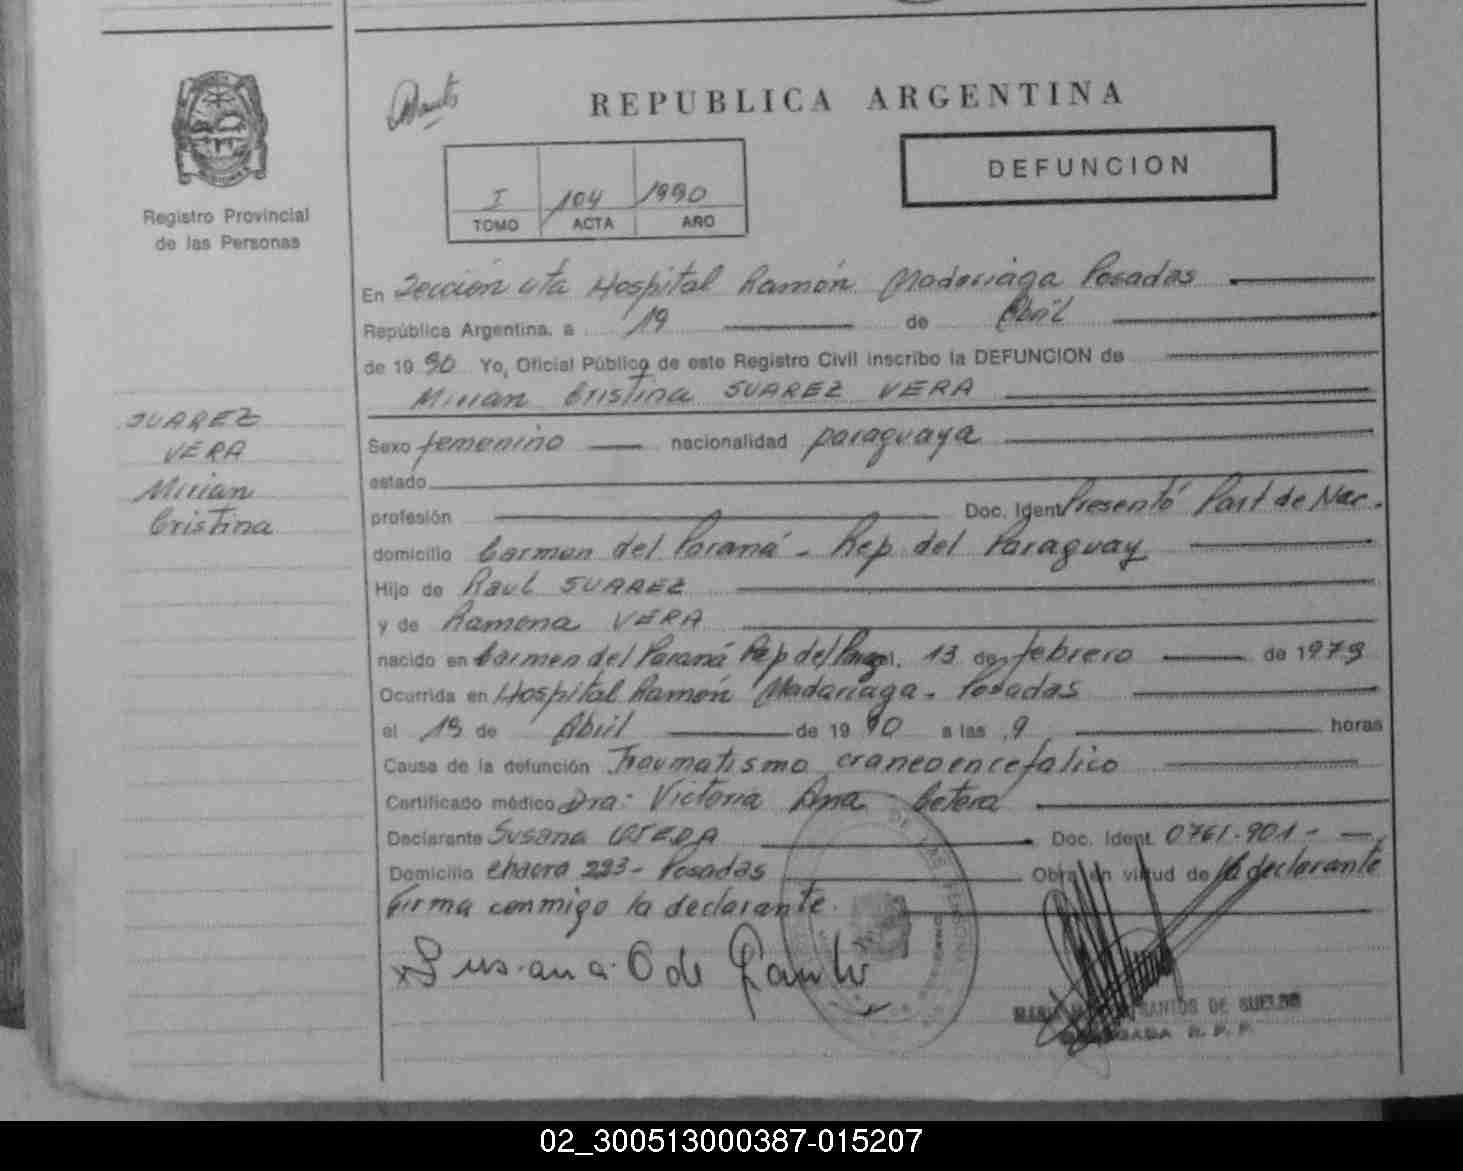 REPUBLICA ARGENTINA
DEFUNCION
I 104 1990
TOMO ACTA AÑO
Registro Provincial
de las Personas
En Sección 4ta Hospital Ramón Madariaga Posadas
República Argentina, a 19 de Abril
de 1990 Yo, Oficial Público de este Registro Civil inscribo la DEFUNCION de
Mirian Cristina SUAREZ VERA
SUAREZ
VERA
Mirian
Cristina
Sexo femenino nacionalidad paraguaya
estado
profesión Doc. Ident Presentó Part de Nac.
domicilio Carmen del Paraná - Rep. del Paraguay
Hijo de Raul SUAREZ
y de Ramona VERA
nacido en Carmen del Paraná Rep del el, 13 de febrero de 1979
Ocurrida en Hospital Ramón Madariaga - Posadas
el 19 de Abril de 1990 a las 9 horas
Causa de la defunción Traumatismo craneoencefalico
Certificado médico Dra: Victoria Ana
Declarante Susana OJEDA Doc. Ident. 0761.901 -
Domicilio chacra 293 - Posadas Obra en virtud de la declarante
firma conmigo la declarante.
Susana O de
SANTOS DE SUELDO
02_300513000387-015207